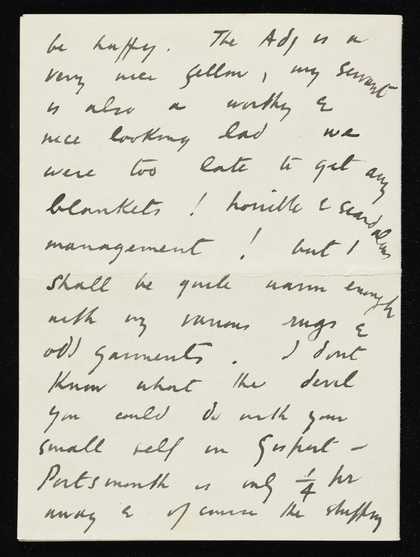 be happy. The Adj is a
very nice fellow, my servant
is also a worthy &
nice looking lad we
were too late to get any
blankets! horrible & scandalous
management! but I
shall be quite warm enough
with my various rugs &
odd garments. I dont
know what the devil
you could do with your
small self in Gosport –
Portsmouth is only 1/4 hr
away & of course the shipping